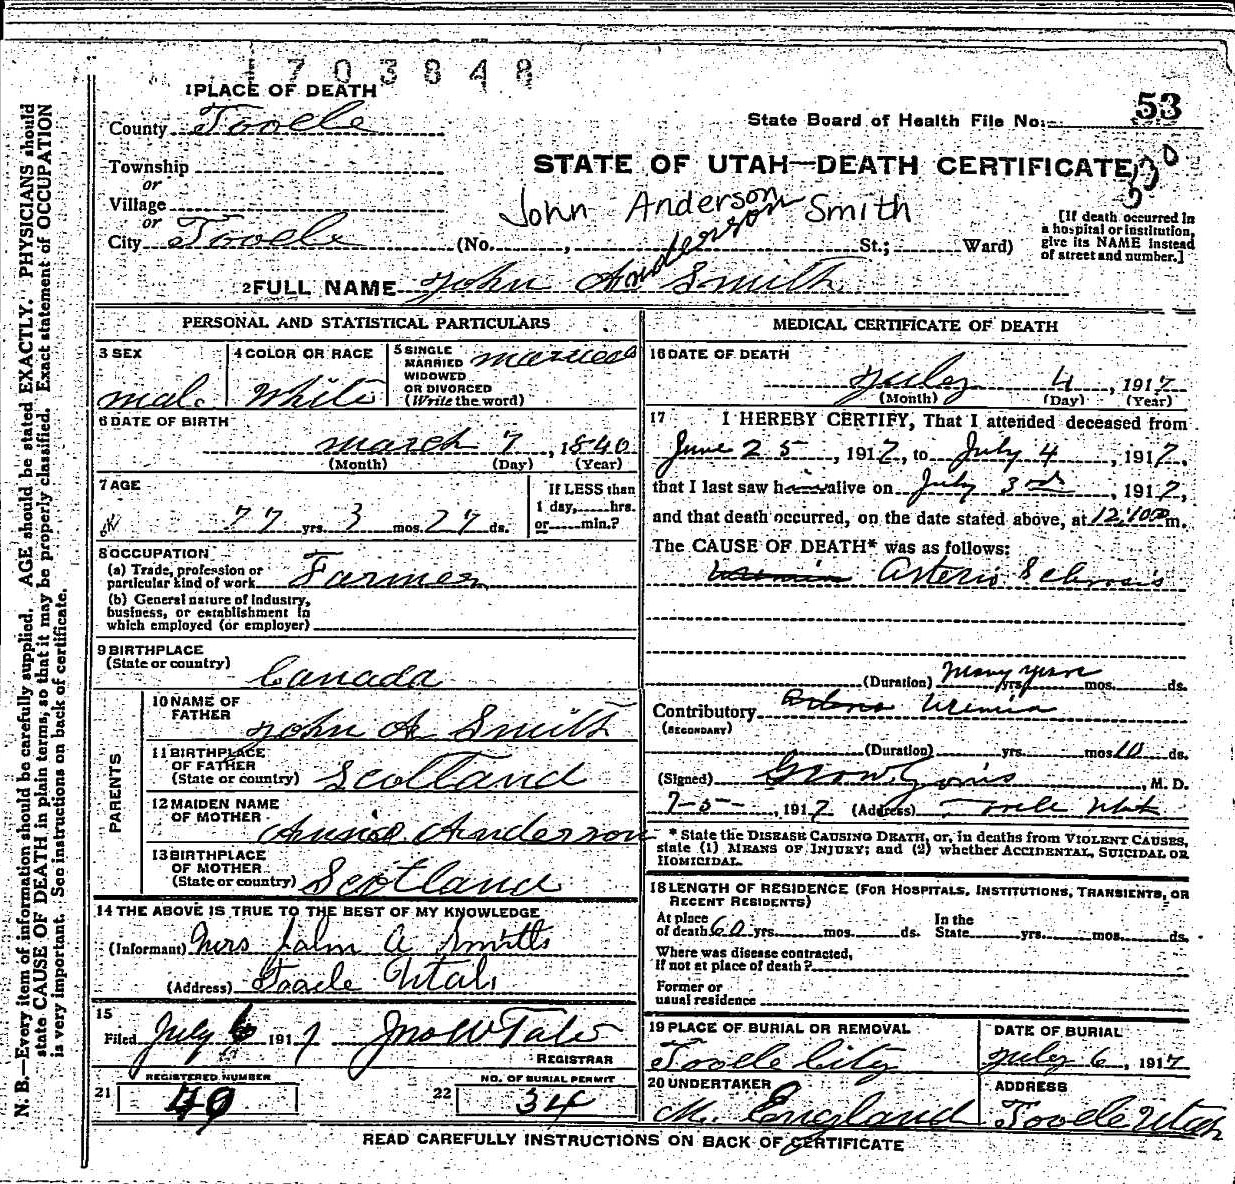 1703848
1 PLACE OF DEATH
53
County Tooele
State Board of Health File No.
Township
STATE OF UTAH—DEATH CERTIFICATE
or
Village
John Anderson Smith
or
[If death occurred in
a hospital or institution,
give its NAME instead
of street and number.]
City Tooele (No. , St.; Ward)
Anderson
2 FULL NAME John A Smith
PERSONAL AND STATISTICAL PARTICULARS
3 SEX
male
4 COLOR OR RACE
White
5 SINGLE
MARRIED
WIDOWED
OR DIVORCED
(Write the word)
married
6 DATE OF BIRTH
march 7, 1840
(Month) (Day) (Year)
7 AGE
77 yrs. 3 mos. 27 ds.
If LESS than
1 day, hrs.
or min.?
8 OCCUPATION
(a) Trade, profession or
particular kind of work Farmer
(b) General nature of industry,
business, or establishment in
which employed (or employer)
9 BIRTHPLACE
(State or country)
Canada
PARENTS
10 NAME OF
FATHER
John A Smith
11 BIRTHPLACE
OF FATHER
(State or country) Scotland
12 MAIDEN NAME
OF MOTHER
Anderson
13 BIRTHPLACE
OF MOTHER
(State or country) Scotland
14 THE ABOVE IS TRUE TO THE BEST OF MY KNOWLEDGE
(Informant) Mrs John A Smith
(Address) Tooele Utah
15
Filed July 6 1917 Jno W Tate
REGISTRAR
REGISTERED NUMBER
21 49
NO. OF BURIAL PERMIT
22 34
MEDICAL CERTIFICATE OF DEATH
16 DATE OF DEATH
July 4, 1917
(Month) (Day) (Year)
17 I HEREBY CERTIFY, That I attended deceased from
June 25, 1917, to July 4, 1917,
that I last saw h alive on July 3rd, 1917,
and that death occurred, on the date stated above, at m.
The CAUSE OF DEATH* was as follows:
Arterio Sclrosis
(Duration) Many years yrs. mos. ds.
Contributory Uremia
(SECONDARY)
(Duration) yrs. mos. 10 ds.
(Signed) , M. D.
7-5-, 1917 (Address) Tooele Utah
* State the DISEASE CAUSING DEATH, or, in deaths from VIOLENT CAUSES,
state (1) MEANS OF INJURY; and (2) whether ACCIDENTAL, SUICIDAL OR
HOMICIDAL.
18 LENGTH OF RESIDENCE (FOR HOSPITALS, INSTITUTIONS, TRANSIENTS, OR
RECENT RESIDENTS)
At place
of death 60 yrs. mos. ds.
In the
State yrs. mos. ds.
Where was disease contracted,
if not at place of death?
Former or
usual residence
19 PLACE OF BURIAL OR REMOVAL
Tooele City
DATE OF BURIAL
July 6, 1917
20 UNDERTAKER
M. England
ADDRESS
Tooele Utah
READ CAREFULLY INSTRUCTIONS ON BACK OF CERTIFICATE
N. B.—Every item of information should be carefully supplied. AGE should be stated EXACTLY. PHYSICIANS should
state CAUSE OF DEATH in plain terms, so that it may be properly classified. Exact statement of OCCUPATION
is very important. See instructions on back of certificate.